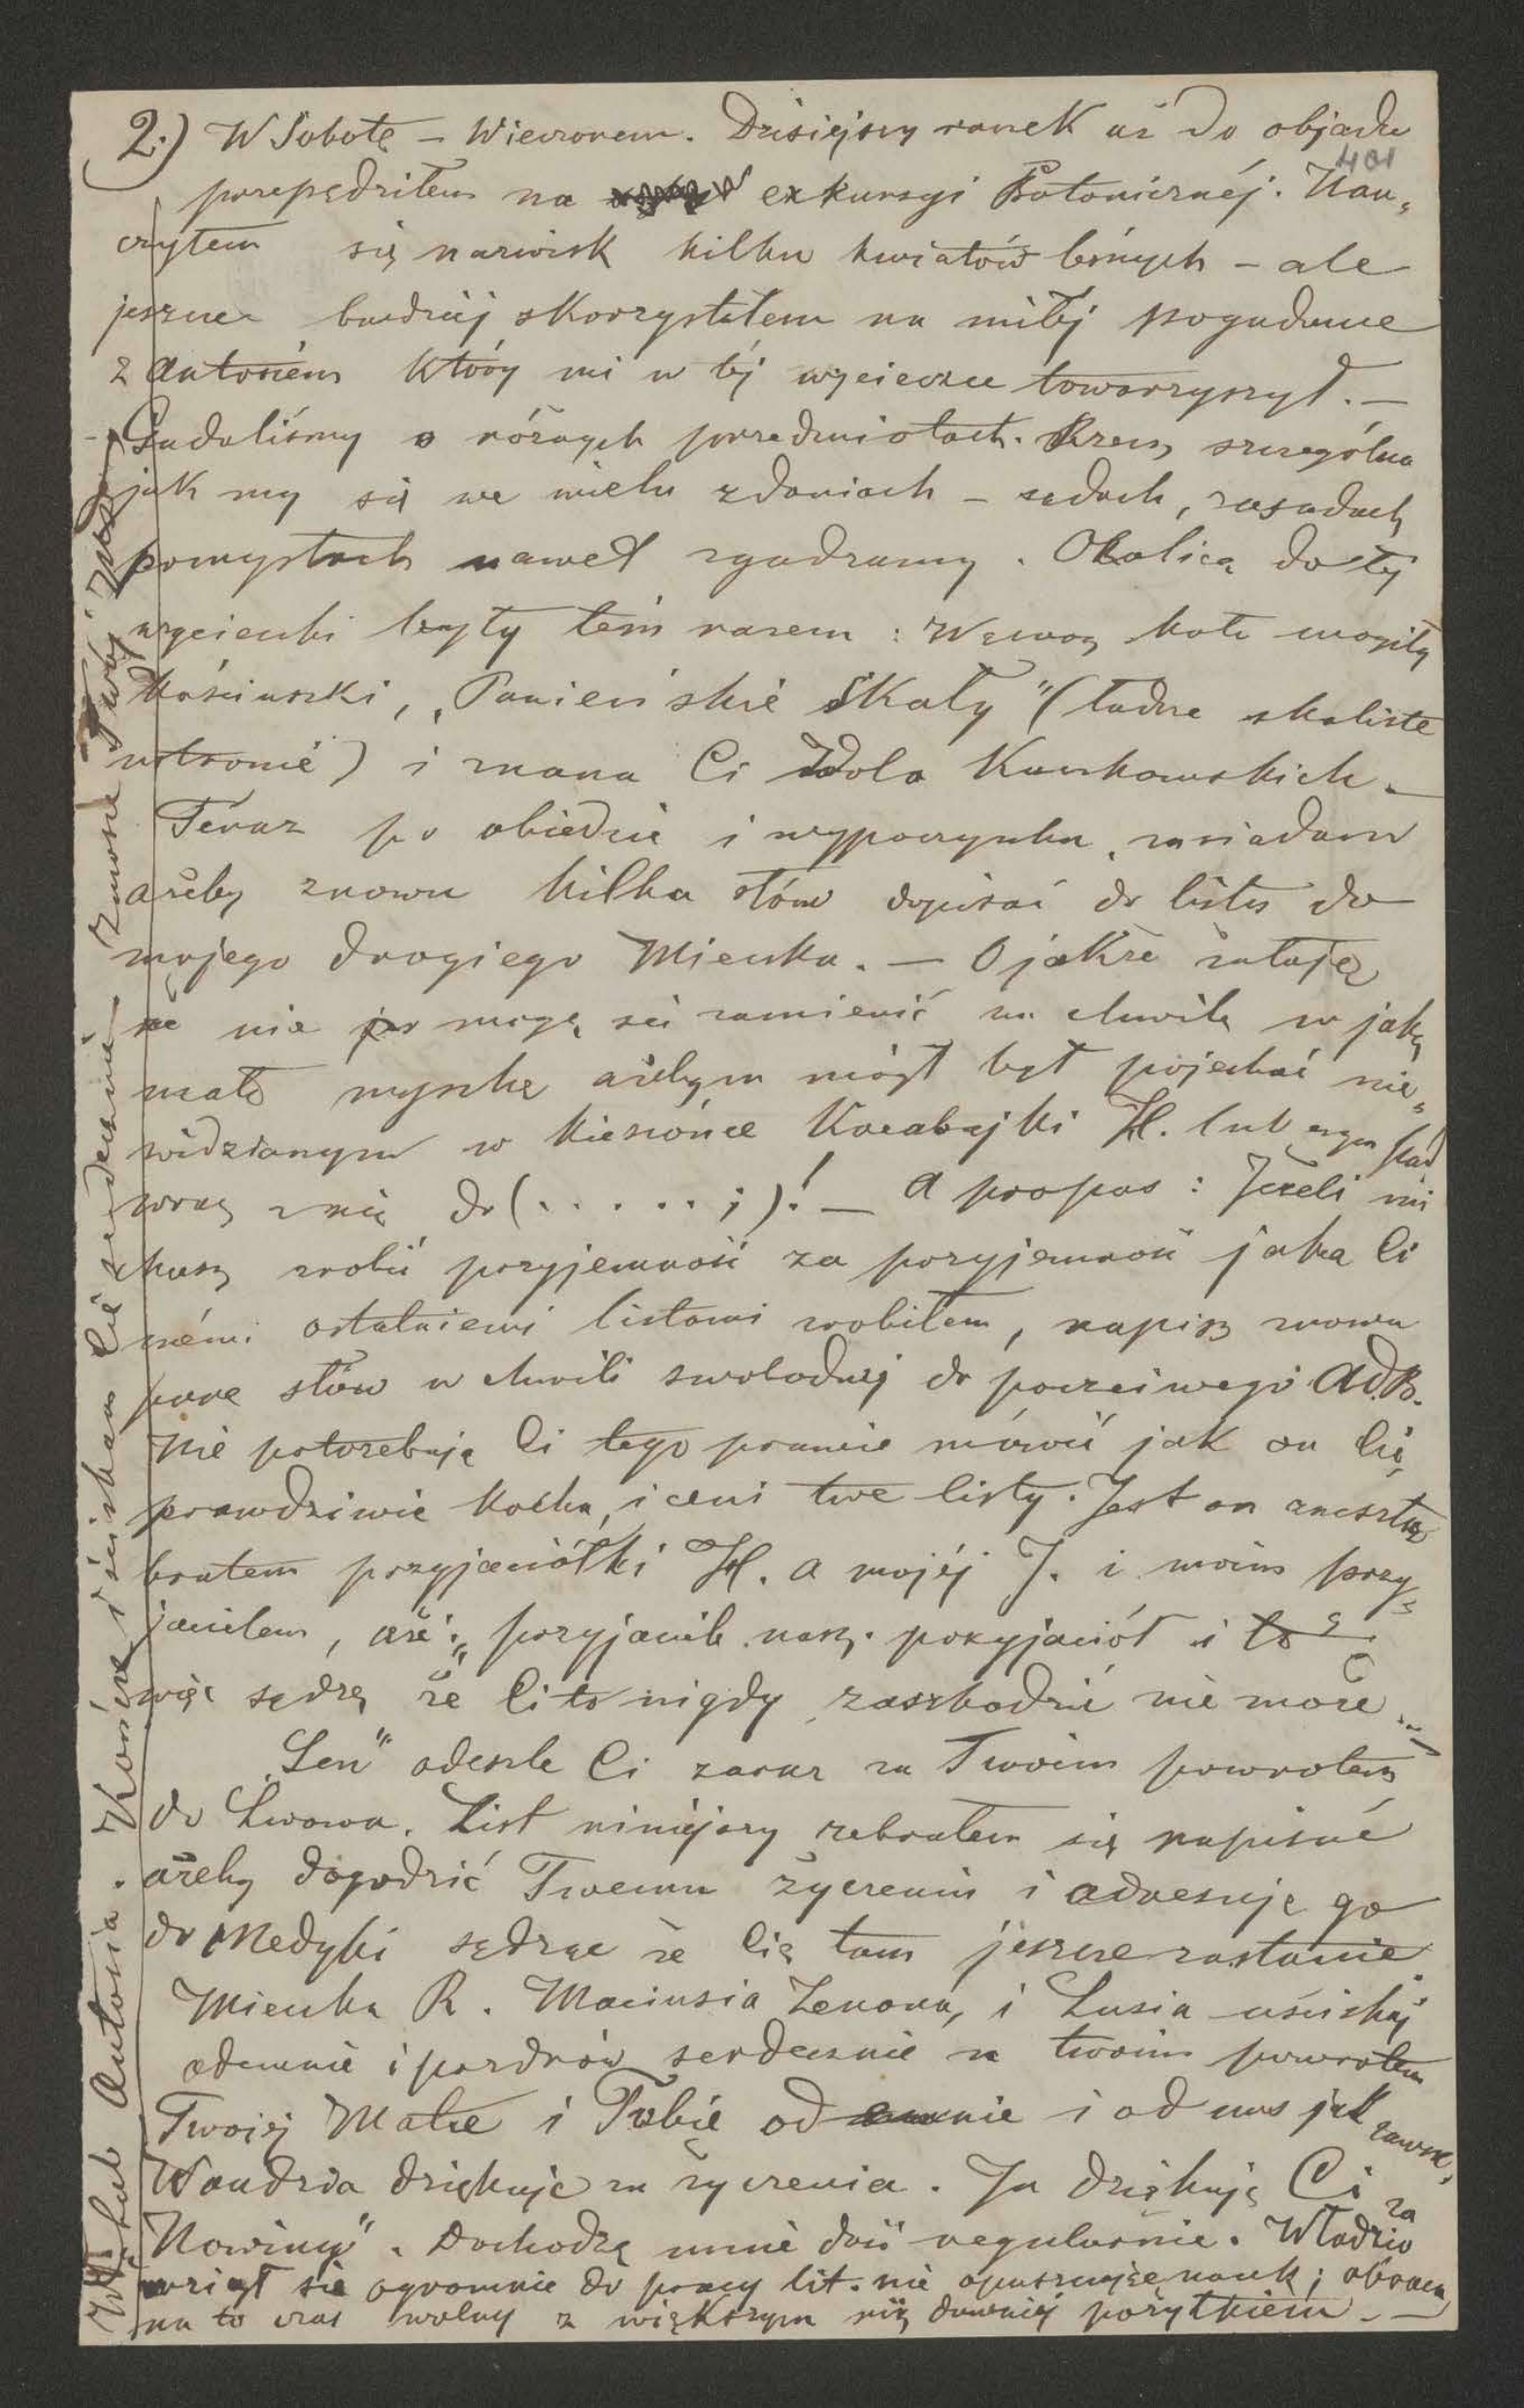 2.) W Sobotę – Wieczorem. Dzisiejszy ranek aż do objadu
401
przepędziłem na exkursyi Botanicznéj. Nau„
czyłem się nazwisk kilku kwiatów leśnych – ale
jeszcze bardziéj skorzystałem na miłéj pogadance
z Antosiém który mi w téj wycieczce towarzyszył. –
Gadaliśmy o różnych przedmiotach. Rzecz szczególna
jak my się we wielu zdaniach – sądach, zasadach,
pomysłach nawet zgadzamy. Okolicą do téj
wycieczki były tém razem: Wąwozy koło mogiły
Kościuszki, „Panieńskie Skały" (ładne skaliste
ustronie) i znana Ci Wola Kaczkowskich. –
Téraz po obiedzie i wypoczynku, zasiadam
ażeby znowu kilka słów dopisać do listu do
mojego drogiego Miecka. – O jakże żałuję
że nie mogę się zamienić na chwilę w jaką
małą myszkę ażebym mógł był pojechać nie„
widzianym w kieszónce Karabajki H. lub
wraz z nią do (. . . . . ; )! – A propos: Jeżeli mi
chcesz zrobić przyjemność za przyjemność jaką Ci
mémi ostatniemi listami zrobiłem, napisz znowu
parę słów w chwili swobodnéj do poczciwego Ad.B.
Nie potrzebuję Ci tego prawie mówić jak on Cię
prawdziwie kocha, i ceni twe listy. Jest on zresztą
bratem przyjaciółki H. a mojéj J. i moim przy„
jacielem, więc sądzę że Ci to nigdy zaszkodzić nie może. –
„Sen" odeszlę Ci zaraz za Twoim powrotem
do Lwowa. List niniejszy zebrałem się napisać
ażeby dogodzić Twemu życzeniu i adresuję go
do Medyki sądząc że Cię tam jeszcze zastanie.
Miecka R. Maciusia Zenona, i Lusia uściskaj
odemnie i pozdrów serdecznie za twoim powrotem
Twojéj Matce i Tobie od nie i od nas jak zawsze,
Wandzia dziękuje za życzenia. Ja dziękuję Ci za
„Nowiny". Dochodzą mnie dość regularnie. Władzio
wziął się ogromnie do pracy lit. nie opuszczając nauk; obraca
na to czas wolny z większym niż dawniéj pożytkiem. –
Antosia. Kończę i ściskam Cię serdecznie – Zawsze Twój